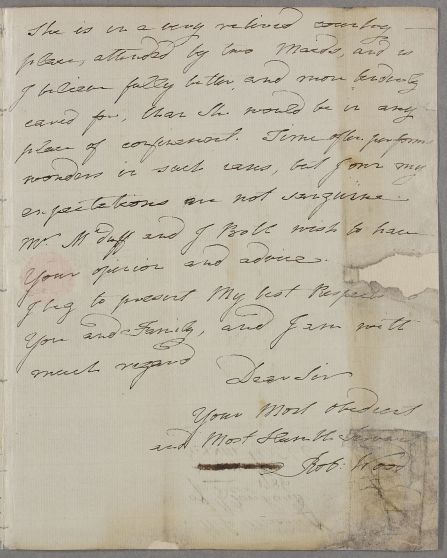 She is in a very retired country
place, attended by two Maids, and is
I believe fully better and more tenderly
cared for, than she would be in any
place of confinement. Time often performs
wonders in such cases, but I own my
expectations are not sanguine.
Mr. McDuff and I Both wish to have
Your opinion and advice.
I beg to present My best Respects to
You and Family, and I am with
much regard
Dear Sir
Your Most Obedient
and Most Humble Servant
Rob: Wood